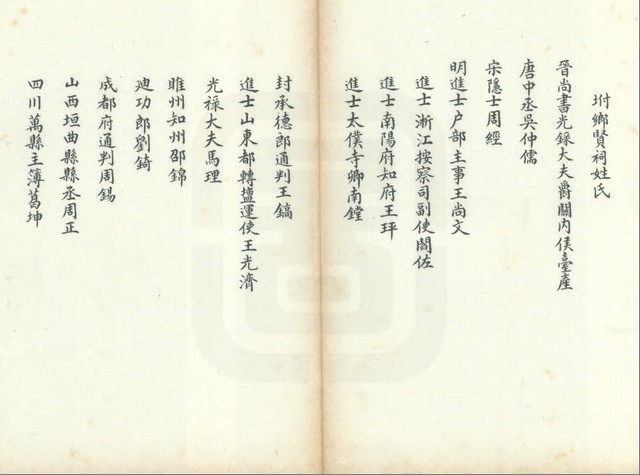 坿鄉賢祠姓氏
晉尚書光錄大夫爵關內侯臺產
唐中丞吳仲儒
宋隱士周經
明進士户部主事王尚文
進士浙江按察司副使閻佐
進士南陽府知府王玶
進士太僕寺卿南鏜
封承德郎通判王鎬
進士山東都轉鹽運使王光濟
光祿大夫馬理
睢州知州邵錦
廸功郎劉錡
成都府通判周錫
山西垣曲縣縣丞周正
四川萬縣主簿葛坤